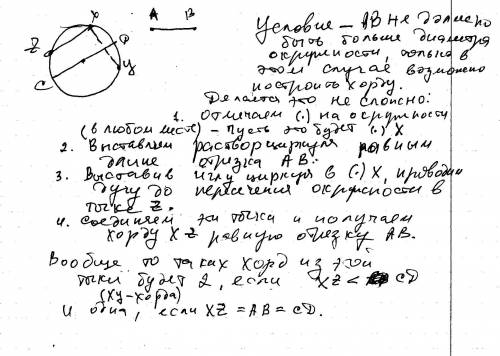 X
A B
Z
D
C
У
Условие – АВ не должно
быть больше диаметра
окружности, только в
этом случае возможно
построить хорду.
Делается это не сложно:
1. Отмечаем (.) на окружности
(в любом месте) – пусть это будет (.) X
2. Выставляем раствор циркуля равным
длине отрезка АВ.
3. Выставив иглу циркуля в (.) X, проводим
дугу до пересечения окружности в
точке Z.
4. Соединяем эти точки и получаем
хорду XZ равную отрезку АВ.
Вообще то таких хорд из этой
точки будет 2, если XZ < CD
(ХУ-хорда)
и одна, если XZ = АВ = CD.